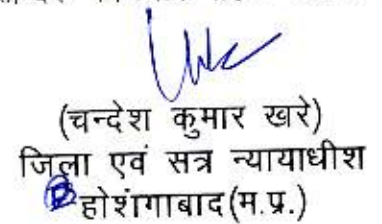 (चन्देश कुमार खरे)
जिला एवं सत्र न्यायाधीश
होशंगाबाद(म.प्र.)